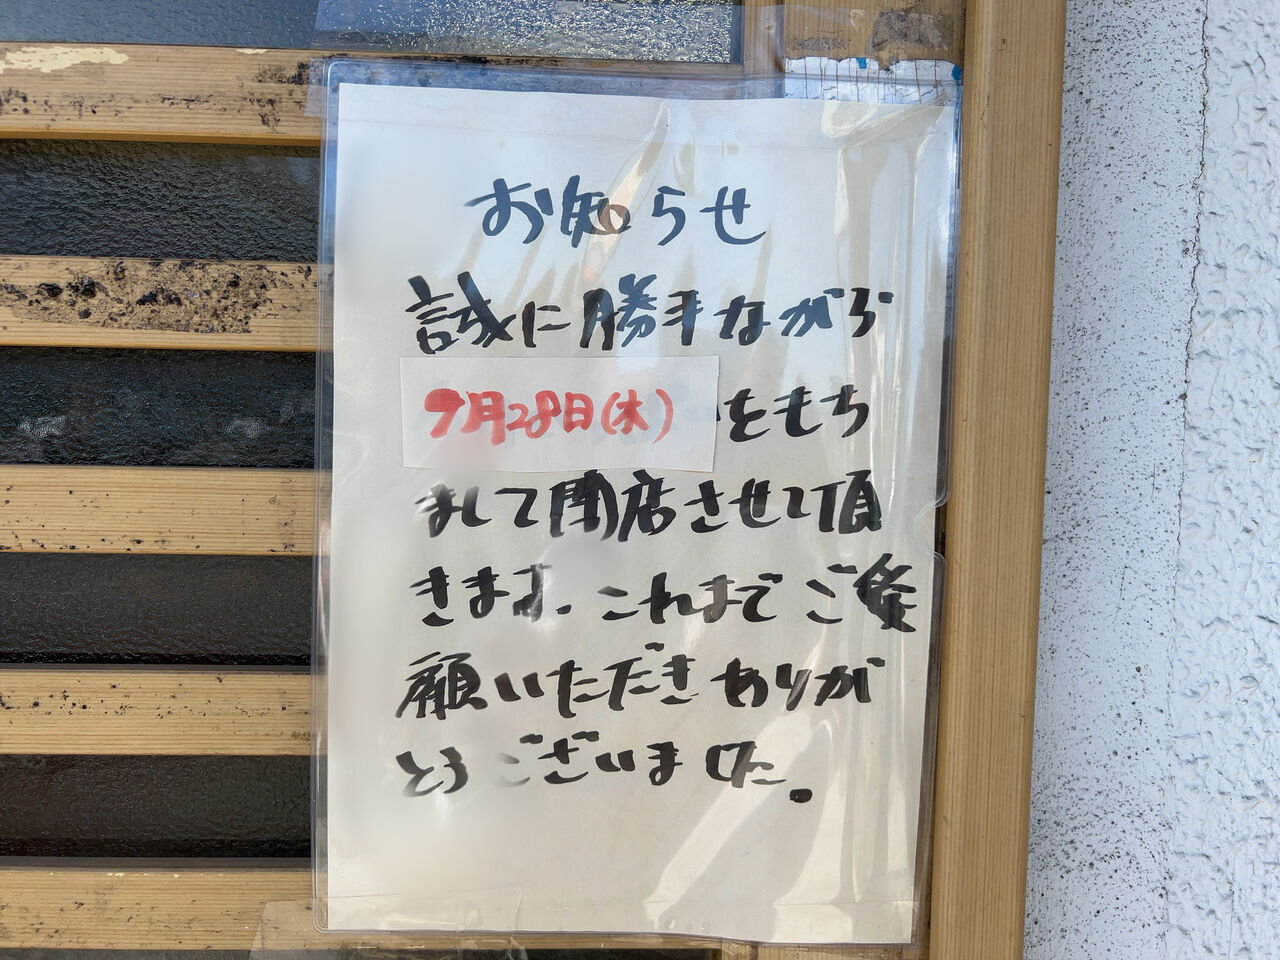 お知らせ
誠に勝手ながら
9月28日(木)をもち
まして閉店させて頂
きます。これまでご愛
顧いただきありが
とうございました。